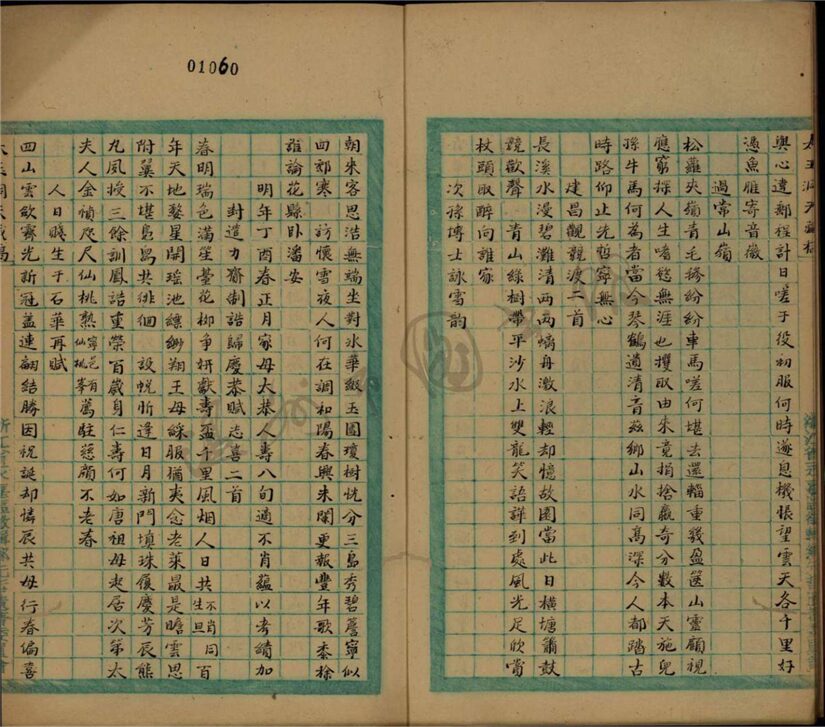 太玉洞天藏稿
與心違郵程計日嗟予役初服何時遂息機悵望雲天各千里好
憑魚雁寄音徽
過常山嶺
松蘿夾嶺青毛 紛紛車馬嗟何堪去還輜重幾盈篋山靈顧視
應竊 人生嗜慾無涯也攫取由來竟捐捨贏奇分數本天施兒
孫牛馬何為者當今琴鶴遺清音茲鄉山水同高深今人都踏古
時路仰止先哲寧無心
建昌觀競渡二首
長溪水漫碧灘清兩兩螭舟激浪輕却憶故園當此日橫塘簫鼓
競歡聲 青山綠樹帶平沙水上雙龍笑語譁到處風光足欣賞
杖頭取醉向誰家
次孫博士詠雪韵
01060
朝來客思浩無端坐對冰華緲玉團瓊樹恍分三島秀碧簷寧似
四郊寒 訪懷雪夜人何在調和陽春興未闌更報豐年歌黍稌
誰論花縣卧潘安
明年丁酉春正月家母大恭人壽八旬適不肖蘊以考績加
封遣力齎制誥歸慶恭賦志喜二首
春明瑞色滿筵臺花柳爭妍獻壽盃千里風烟人日共不肖同生旦百
年天地婺星開瑤池縹緲翔王母綵服猶夾念老萊最是瞻雲思
附翼不堪島舄共徘徊 設帨昕逢日月新門填珠履慶芳辰熊
九風授三餘訓鳳誥重榮百歲身仁壽何如唐祖母起居次第太
夫人金幀咫尺仙桃熟寧邑有仙桃峯薦駐慈顏不老春
人日賤生于石華再賦
四山雲欲霽光新冠蓋連翩結勝因祝誕却憐辰共母行春偏喜